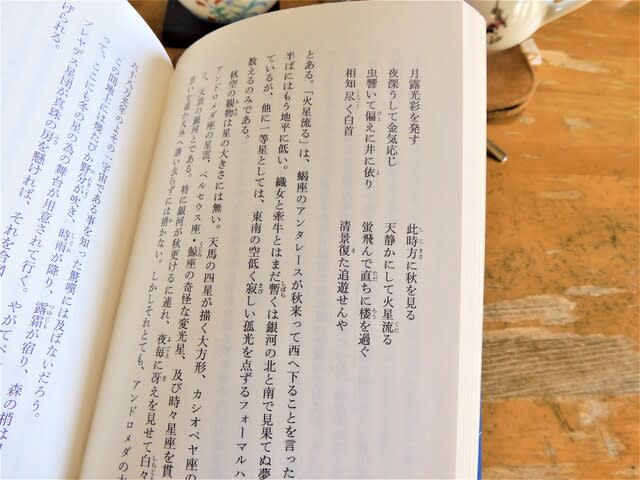 月露光彩を発す　此時方に秋を見る
夜深うして金気応じ　天静かにして火星流る
虫響いて偏えに井に依り　蛍飛んで直ちに楼を過ぐ
相知尽く白首　清景復た追遊せんや
とある。「火星流る」は、蝎座のアンタレースが秋来って西へ下ることを言った
半ばにはもう地平に低い。織女と牽牛とはまだ暫くは銀河の北と南で見果てぬ夢
ているが、他に一等星としては、東南の空低く寂しい孤光を点ずるフォーマルハ
教えるのみである。
秋空の観物は星の大きさには無い。天馬の四星が描く大方形、カシオペヤ座の
アンドロメダ座の星雲、ペルセウス座・鯨座の奇怪な変光星、及び時々星座を貫
う、天頂の銀河とである。特に銀河が秋更けるに連れ、夜毎に冴えを見せて白々
思いを遥か天外へ誘い去らずには措かない。しかしそれとても、アンドロメダの大
六十八万光年のままの一宇宙である事を知った驚嘆には及ばないだろう。
この間地上には幾たびか野分が吹き、時雨が降り、露霜が宿り、森の梢は
って、ここに王冬の星の為の舞台が用意されて行く。やがてペ
プレヤデス星団が真珠の房を懸ければ、それを今
げられる。